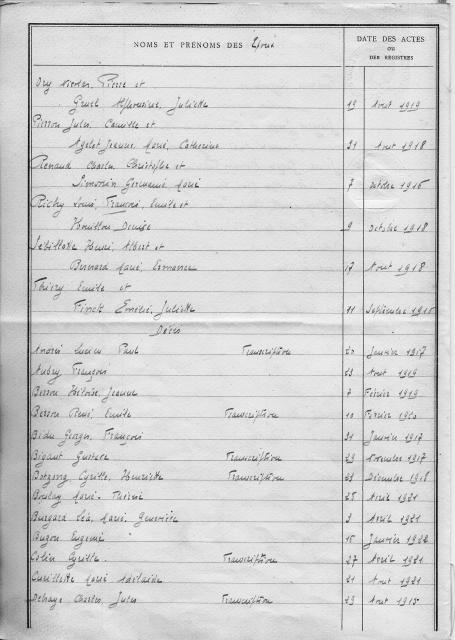 NOMS ET PRÉNOMS DES Epoux
DATE DES ACTES
OU
DES REGISTRES
Ory Nicolas, Pierre et
Alphonsine, Juliette 19 Août 1919
Pierson Jules, Camille et
Jeanne, Marie, Catherine 31 Août 1918
Renaud Charles Christophe et
Simonin Germaine Marie 7 Octobre 1916
Richy Louis, François, Emile et
Houillon Denise 9 Octobre 1918
Henri, Albert et
Bernard Marie, Ermance 17 Août 1918
Thiéry Emile et
Finck Emélie, Juliette 11 Septembre
Décès
Lucien Paul Transcription 20 Janvier 1917
Aubry François 23 Août 1919
Besson Héloïse, Jeanne 7 Février 1919
Besson René, Emile Transcription 10 Février
Georges, François 31 Janvier 1917
Bigaut Gustave Transcription 23 Novembre 1917
Cyrille, Henriette Transcription Décembre 1918
Boulay Marie-Thérèse 25 Avril 1921
Burgard Léa, Marie, Geneviève 3 Avril 1921
Buzon Eugène 15 Janvier 1922
Colin Cyrille Transcription 27 Avril 1921
Marie Adélaïde 21 Août 1921
Delhaye Charles, Jules Transcription 23 Août 1915